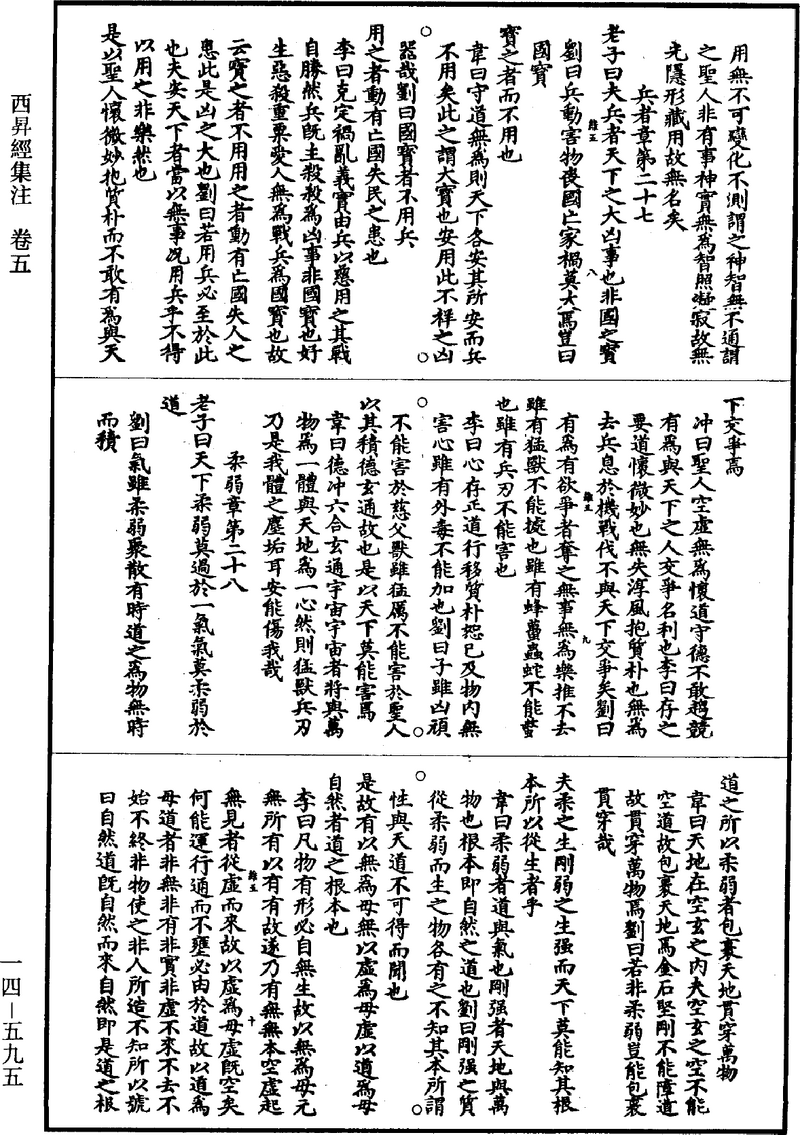 西昇經集注　卷五
用無不可變化不測謂之神智無不通謂
之聖人非有事神實無為智照嘿寂故無
光隱形藏用故無名矣
兵者章第二十七
老子曰夫兵者天下之大凶事也非國之寶
劉曰兵動害物喪國亡家禍莫大焉豈曰
國寶
寶之者而不用也
韋曰守道無為則天下各安其所安而兵
不用矣此之謂大寶也安用此不祥之凶
器哉劉曰國寶者不用兵
用之者動有亡國失民之患也
李曰克定禍亂義實由兵以慈用之其戰
自勝然兵旣主殺殺為凶事非國寶也好
生惡殺重粟愛人無為戰兵為國寶也故
云寶之者不用用之者動有亡國失人之
患此是凶之大也劉曰若用兵必至於此
也夫安天下者當以無事况用兵乎不得
以用之非樂然也
是以聖人懷微妙抱質朴而不敢有為與天
下交爭焉
冲曰聖人空虛無為懷道守德不敢趨競
有為與天下之人交爭名利也李曰存之
要道懷微妙也無失淳風抱質朴也無為
去兵息於機戰伐不與天下交爭矣劉曰
有為有欲爭者奪之無事無為樂推不去
雖有猛獸不能據也雖有蜂蠆蟲蛇不能螫
也雖有兵刃不能害也
李曰心存正道行移質朴恕已及物内無
害心雖有外毒不能加也劉曰子雖凶頑
不能害於慈父獸雖猛厲不能害於聖人
以其積德玄通故也是以天下莫能害焉
韋曰德冲六合玄通宇宙宇宙者將與萬
物為一體與天地為一心然則猛獸兵刃
乃是我體之塵垢耳安能傷我哉
柔弱章第二十八
老子曰天下柔弱莫過於一氣氣莫柔弱於
道
劉曰氣雖柔弱聚散有時道之為物無時
而積
道之所以柔弱者包裹天地貫穿萬物
韋曰天地在空玄之内夫空玄之空不能
空道故包裹天地焉金石堅剛不能障道
故貫穿萬物焉劉曰若非柔弱豈能包裹
貫穿哉
夫柔之生剛弱之生强而天下莫能知其根
本所以從生者乎
韋曰柔弱者道與氣也剛强者天地與萬
物也根本即自然之道也劉曰剛强之質
從柔弱而生之物各有之不知其本所謂
性與天道不可得而聞也
是故有以無為母無以虛為母虛以道為母
自然者道之根本也
李曰凡物有形必自無生故以無為母元
無所有以有有故遂乃有無無本空虛起
無見者從虛而來故以虛為母虛旣空矣
何能運行通而不壅必由於道故以道為
母道者非無非有非實非虛不來不去不
始不終非物使之非人所造不知所以號
曰自然道旣自然而來自然即是道之根
一四－五九五